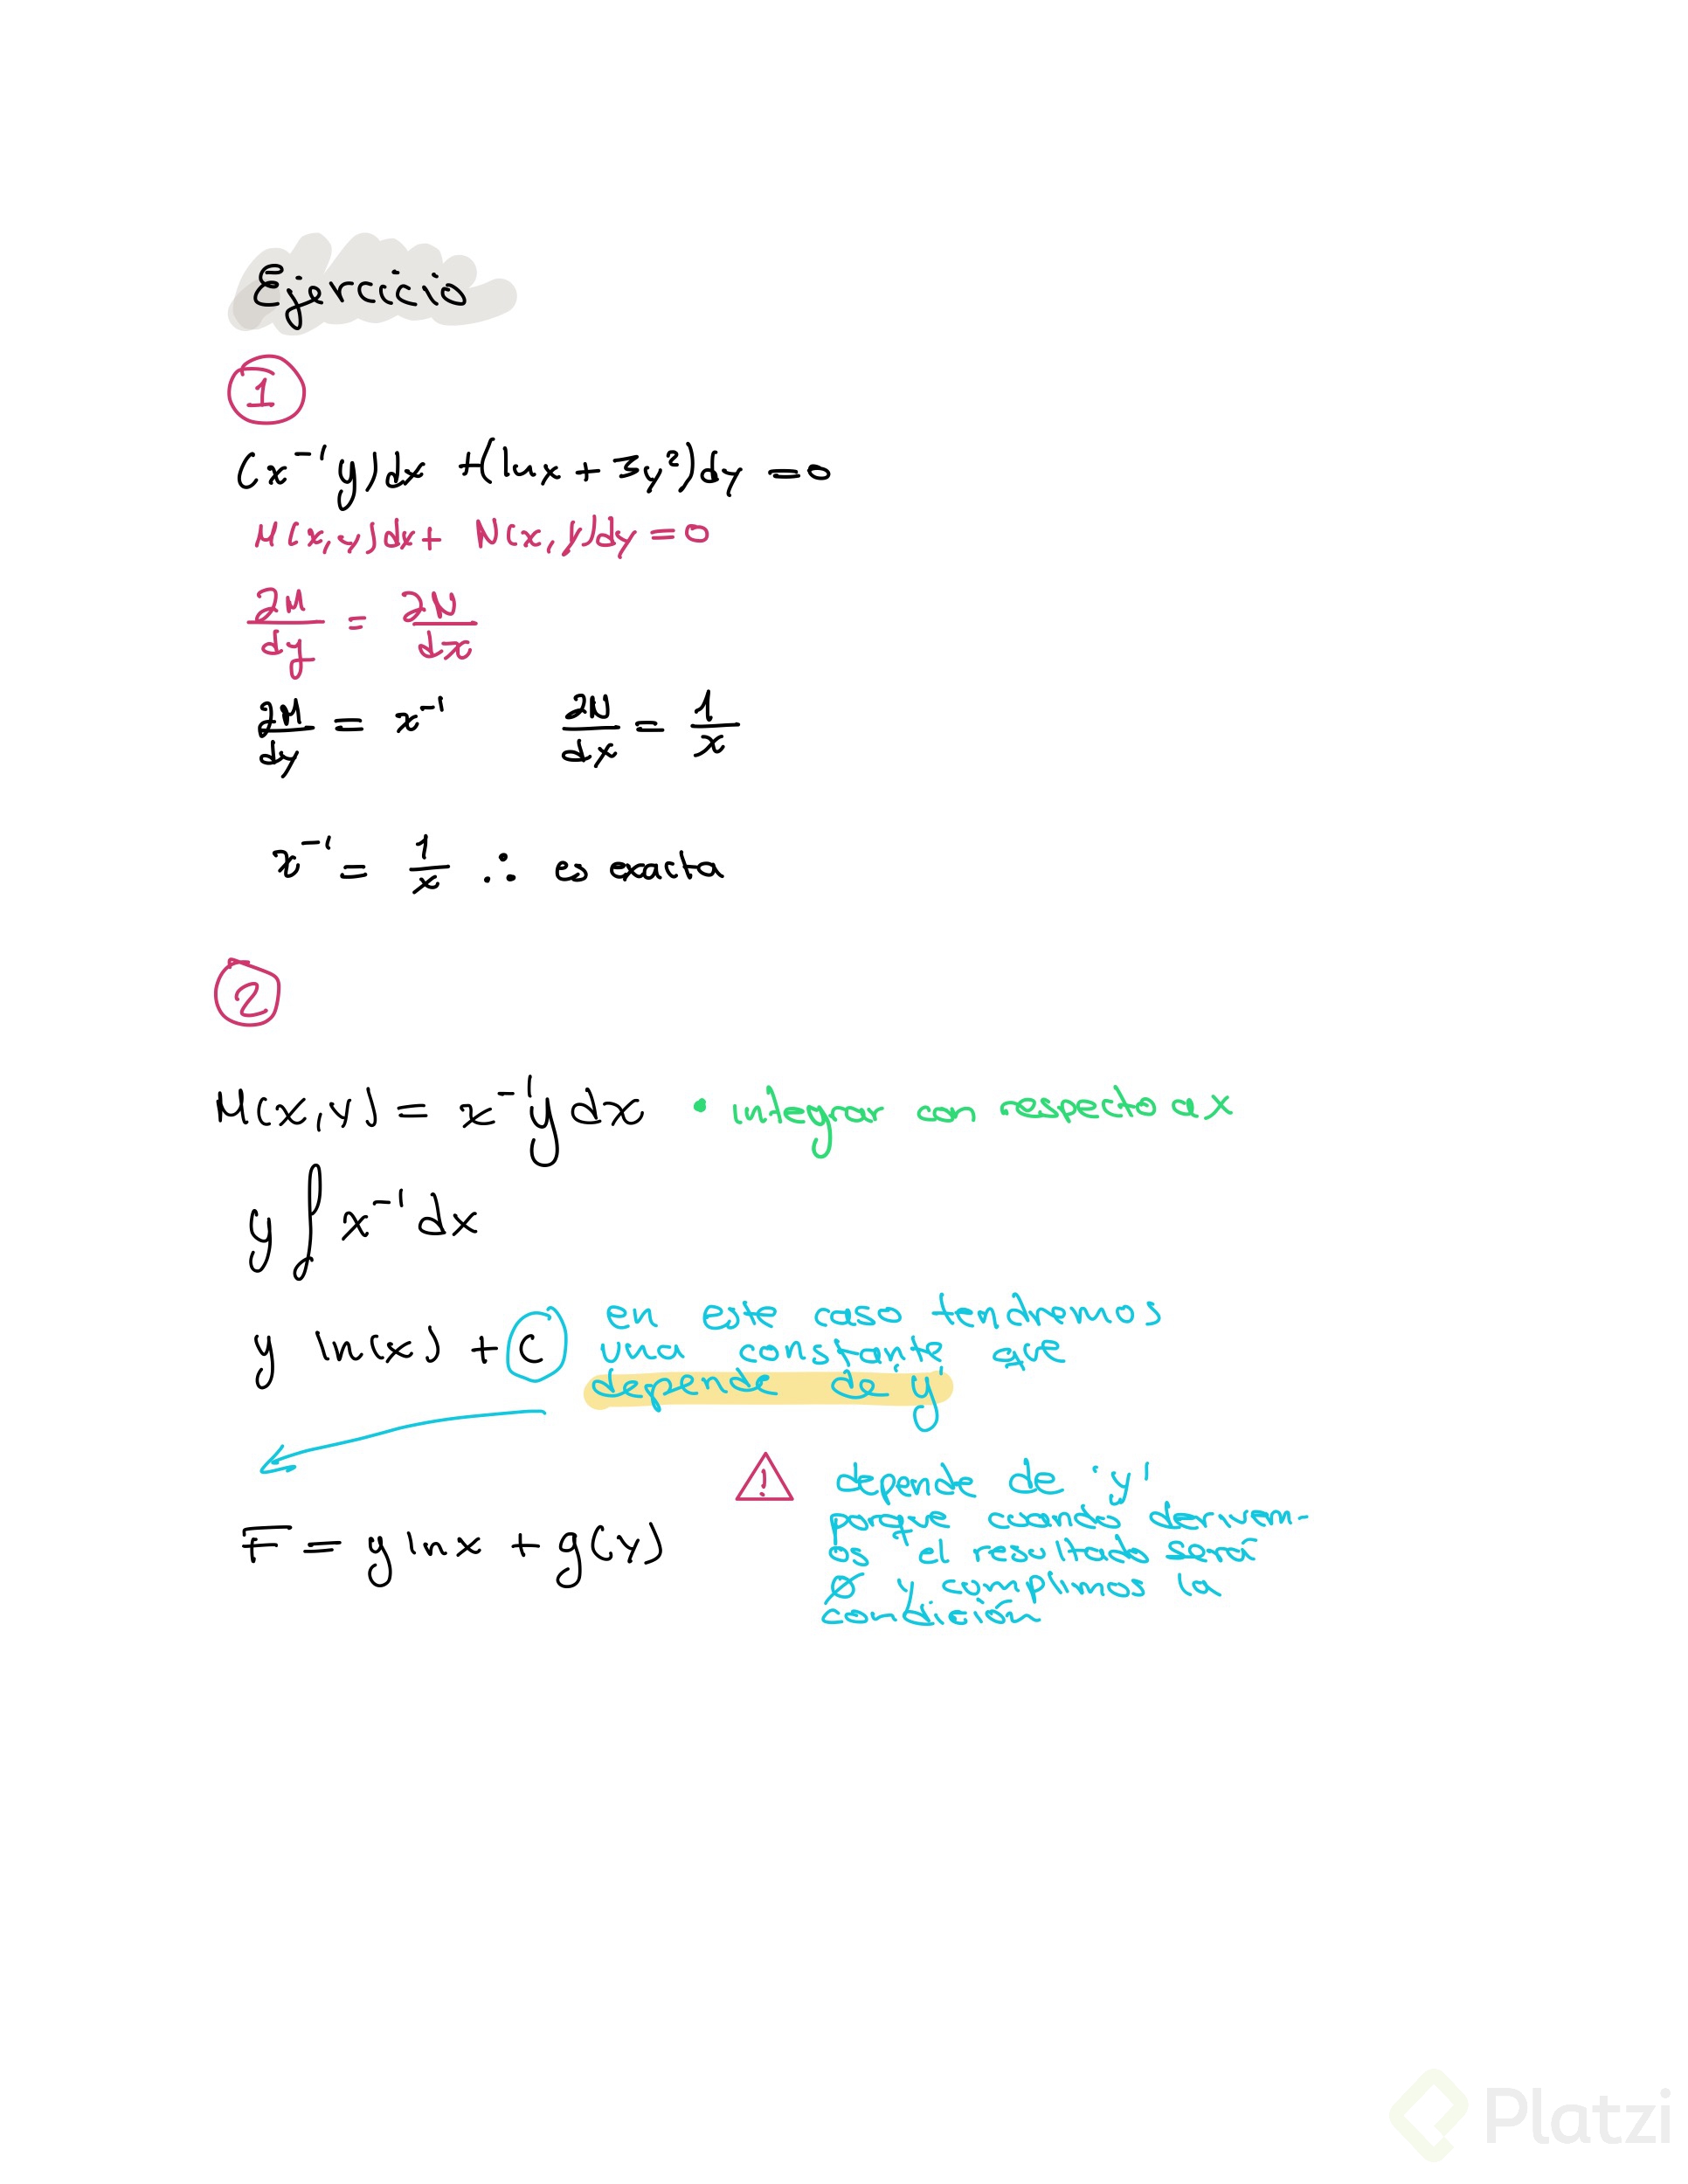 Ejercicio
1
(x⁻¹y)dx +(lnx + 3y²)dy = 0
M(x,y)dx + N(x,y)dy = 0
∂M/dy = ∂N/dx
∂M/dy = x⁻¹ ∂N/dx = 1/x
x⁻¹ = 1/x ∴ es exacta
2
M(x,y) = x⁻¹y dx • integrar con respecto a x
y ∫ x⁻¹ dx
y ln(x) + C
en este caso tendremos
una constante que
depende de 'y'
F = y lnx + g(y)
!
depende de 'y'
porque cuando derivem-
os el resultado sera
Ø y complimos la
condición
Platzi